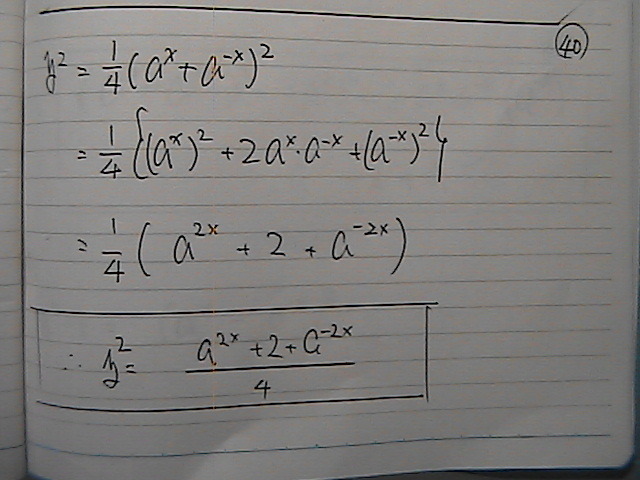 40
y² = 1/4 (aˣ + a⁻ˣ)²
= 1/4 {(aˣ)² + 2aˣ·a⁻ˣ + (a⁻ˣ)²}
= 1/4 ( a²ˣ + 2 + a⁻²ˣ )
∴ y² = (a²ˣ + 2 + a⁻²ˣ)/4